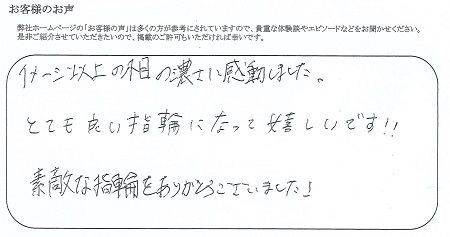 お客様のお声
弊社ホームページの「お客様の声」は多くの方が参考にされていますので、貴重な体験談やエピソードなどをお聞かせください。
是非ご紹介させていただきたいので、掲載のご許可もいただければ幸いです。
イメージ以上の木目の濃さに感動しました。
とても良い指輪になって嬉しいです!!
素敵な指輪をありがとうございました!